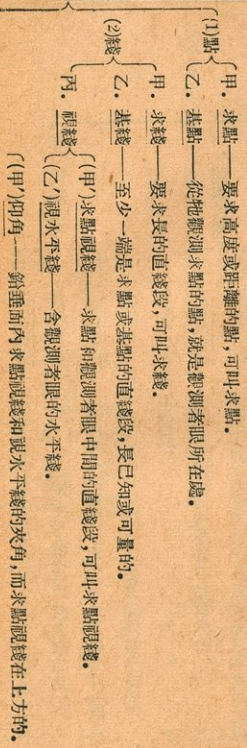 (1)點
甲．求點——要求高度或距離的點，可叫求點。
乙．基點——從牠觀測求點的點，就是觀測者眼所在處。
(2)綫
甲．求綫——要求長的直綫段，可叫求綫。
乙．基綫——至少一端是求點或基點的直綫段，長已知或可量的。
丙．視綫
(甲′)求點視綫——求點和觀測者眼中間的直綫段，可叫求點視綫。
(乙′)視水平綫——含觀測者眼的水平綫。
(甲′)仰角——鉛垂面內求點視綫和視水平綫的夾角，而求點視綫在上方的。